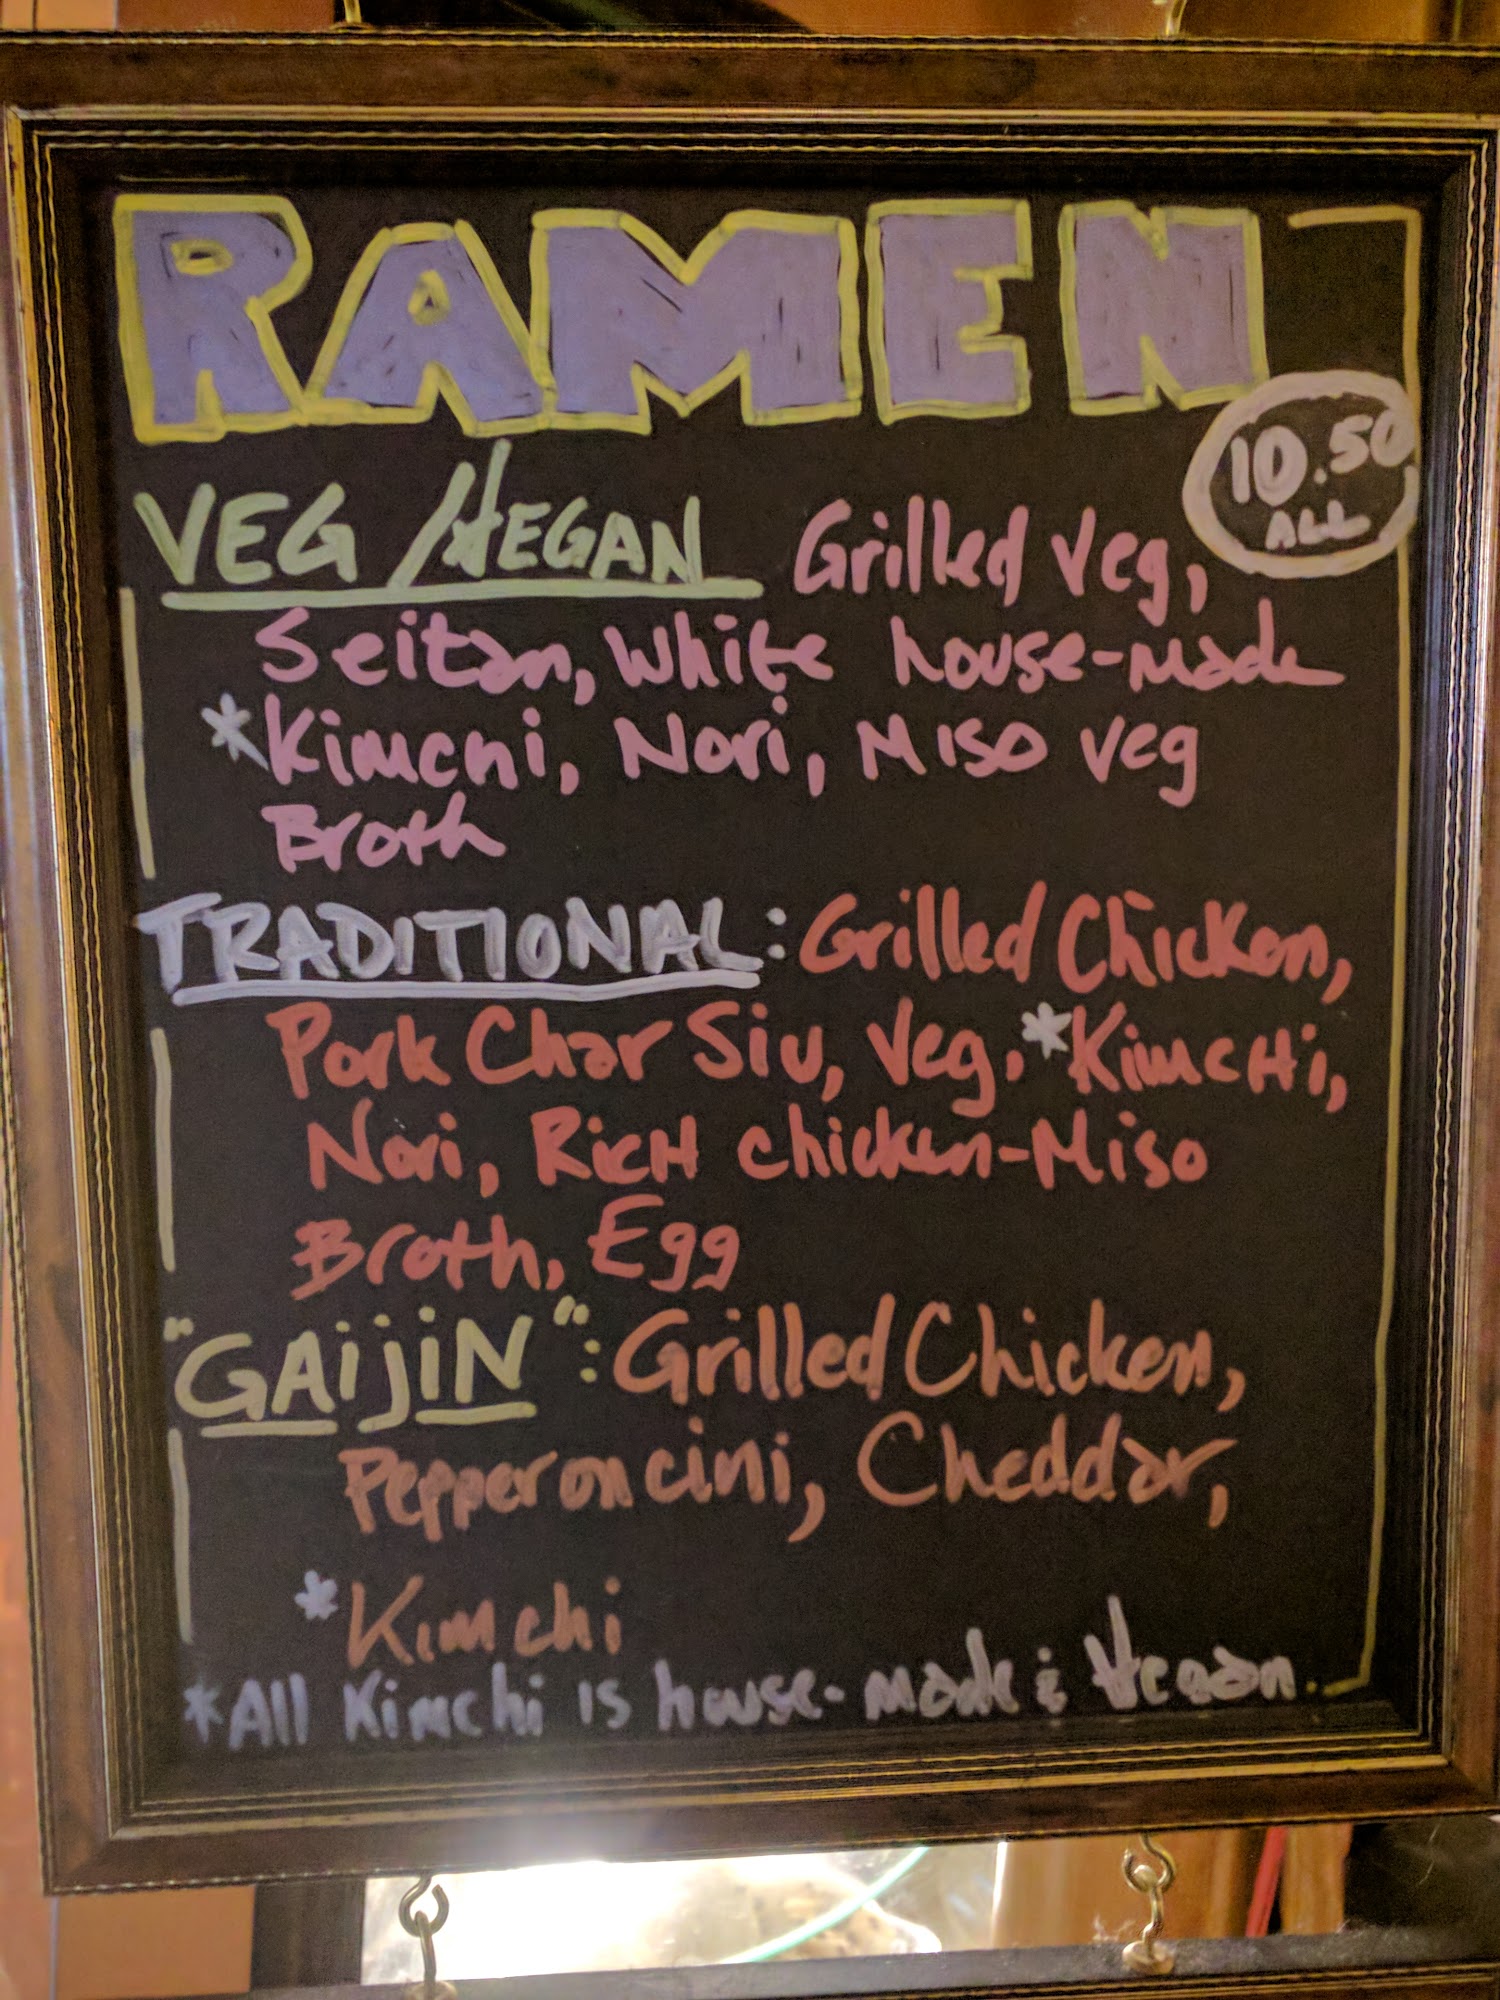 RAMEN
10.50
ALL
VEG/VEGAN Grilled Veg,
Seitan, White house-made
*Kimchi, Nori, Miso Veg
Broth
TRADITIONAL: Grilled Chicken,
Pork Char Siu, Veg, *KimcHi,
Nori, RicH chicken-Miso
Broth, Egg
"GAijiN": Grilled Chicken,
Pepperoncini, Cheddar,
*Kimchi
*All Kimchi is house-made & Vegan.